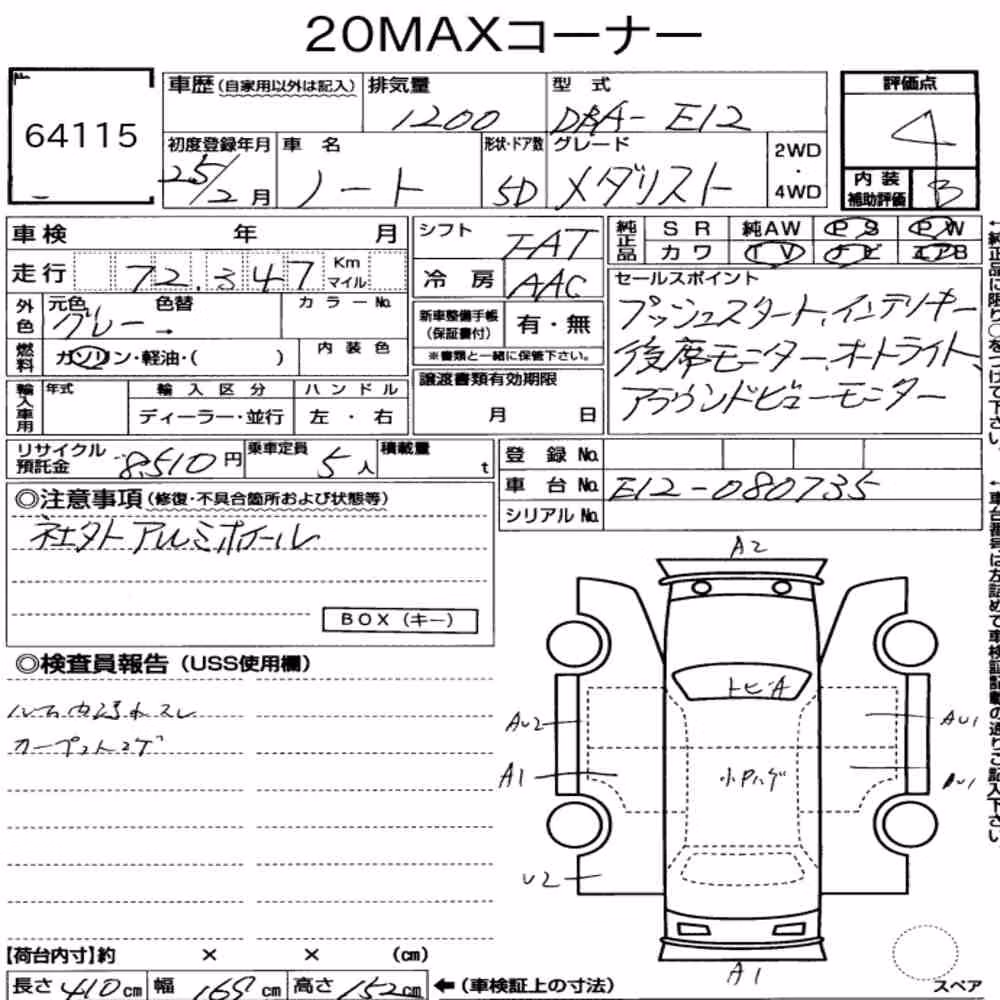 20MAXコーナー
64115
車歴(自家用以外は記入) 排気量 1200 型式 DBA-E12
評価点 4
初度登録年月 25/2月 車名 ノート 形状・ドア数 5D グレード メダリスト 2WD・4WD
内装補助評価 B
車検 年 月
走行 72,347 Km マイル
シフト FAT
冷房 AAC
純正品 SR 純AW PS PW
カワ TV ナビ エアB
セールスポイント
プッシュスタート、インテリキー
後席モニター、オートライト、
アラウンドビューモニター
外色 元色 グレー→ 色替 カラーNo.
燃料 ガソリン・軽油・( ) 内装色
新車整備手帳(保証書付) 有・無
※書類と一緒に保管下さい。
譲渡書類有効期限
月 日
輸入車用 年式 輸入区分 ハンドル
ディーラー・並行 左・右
リサイクル預託金 8,510円 乗車定員 5人 積載量 t
登録No.
車台No. E12-080735
シリアルNo.
◎注意事項(修復・不具合箇所および状態等)
社外アルミホイール
BOX(キー)
◎検査員報告(USS使用欄)
カーペットコゲ
A2
トビA
AU2
AU1
A1
小Pハゲ
U2
A1
【荷台内寸】約 × × (cm)
長さ 410cm 幅 169cm 高さ 152cm ←(車検証上の寸法)
スペア
↑純正品に限り○をつけて下さい。
↑車台番号は左詰めで車検証記載の通りご記入下さい。